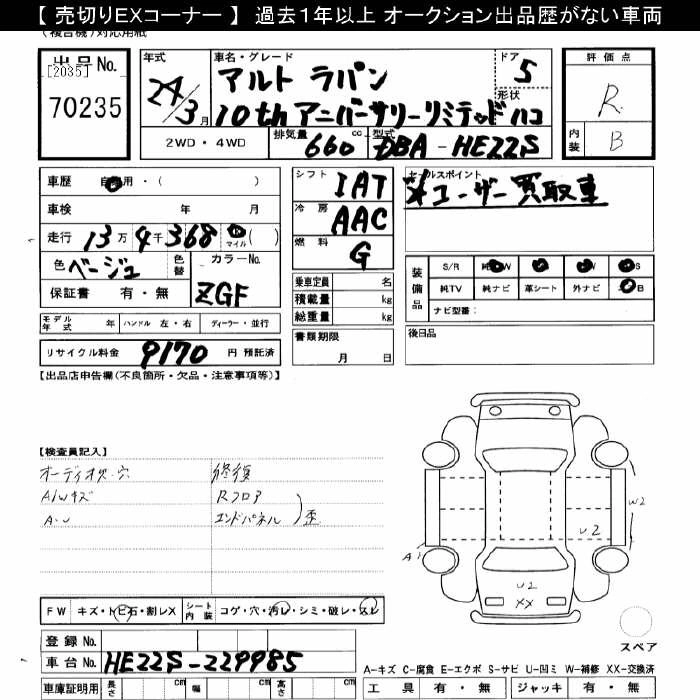 【 売切りEXコーナー 】 過去１年以上 オークション出品歴がない車両
(複合機)対応用紙
出品No.
[2035]
70235
年式
24/3月
車名・グレード
アルト ラパン
10th アニバーサリーリミテッド
ドア
5
形状
ハコ
評価点
R
内装
B
2WD・4WD
排気量
660 cc
型式
DBA - HE22S
車歴 自家用・( )
車検 年 月
走行 13万4千368 マイル( )
色 ベージュ
色替
カラーNo.
ZGF
保証書 有・無
モデル年式 年 ハンドル 左・右 ディーラー・並行
リサイクル料金 9170 円 預託済
シフト
IAT
冷房
AAC
燃料
G
乗車定員 名
積載量 kg
総重量 kg
書類期限
月 日
セールスポイント
※ユーザー買取車
装備品
S/R
純TV 純ナビ 革シート 外ナビ
ナビ型番：
後日品
【出品店申告欄(不良箇所・欠品・注意事項等)】
【検査員記入】
オーディオ欠・穴
A/Wキズ
A・U
修復
Rフロア
エンドパネル
歪
A1
W2
U2
U2
XX
スペア
FW キズ・トビ石・割レX
シート内装
コゲ・穴・汚レ・シミ・破レ・スレ
登録No.
車台No. HE22S-229985
車庫証明用 長さ cm 幅 cm 高さ cm
A-キズ C-腐食 E-エクボ S-サビ U-凹ミ W-補修 XX-交換済
工具 有・無 ジャッキ 有・無